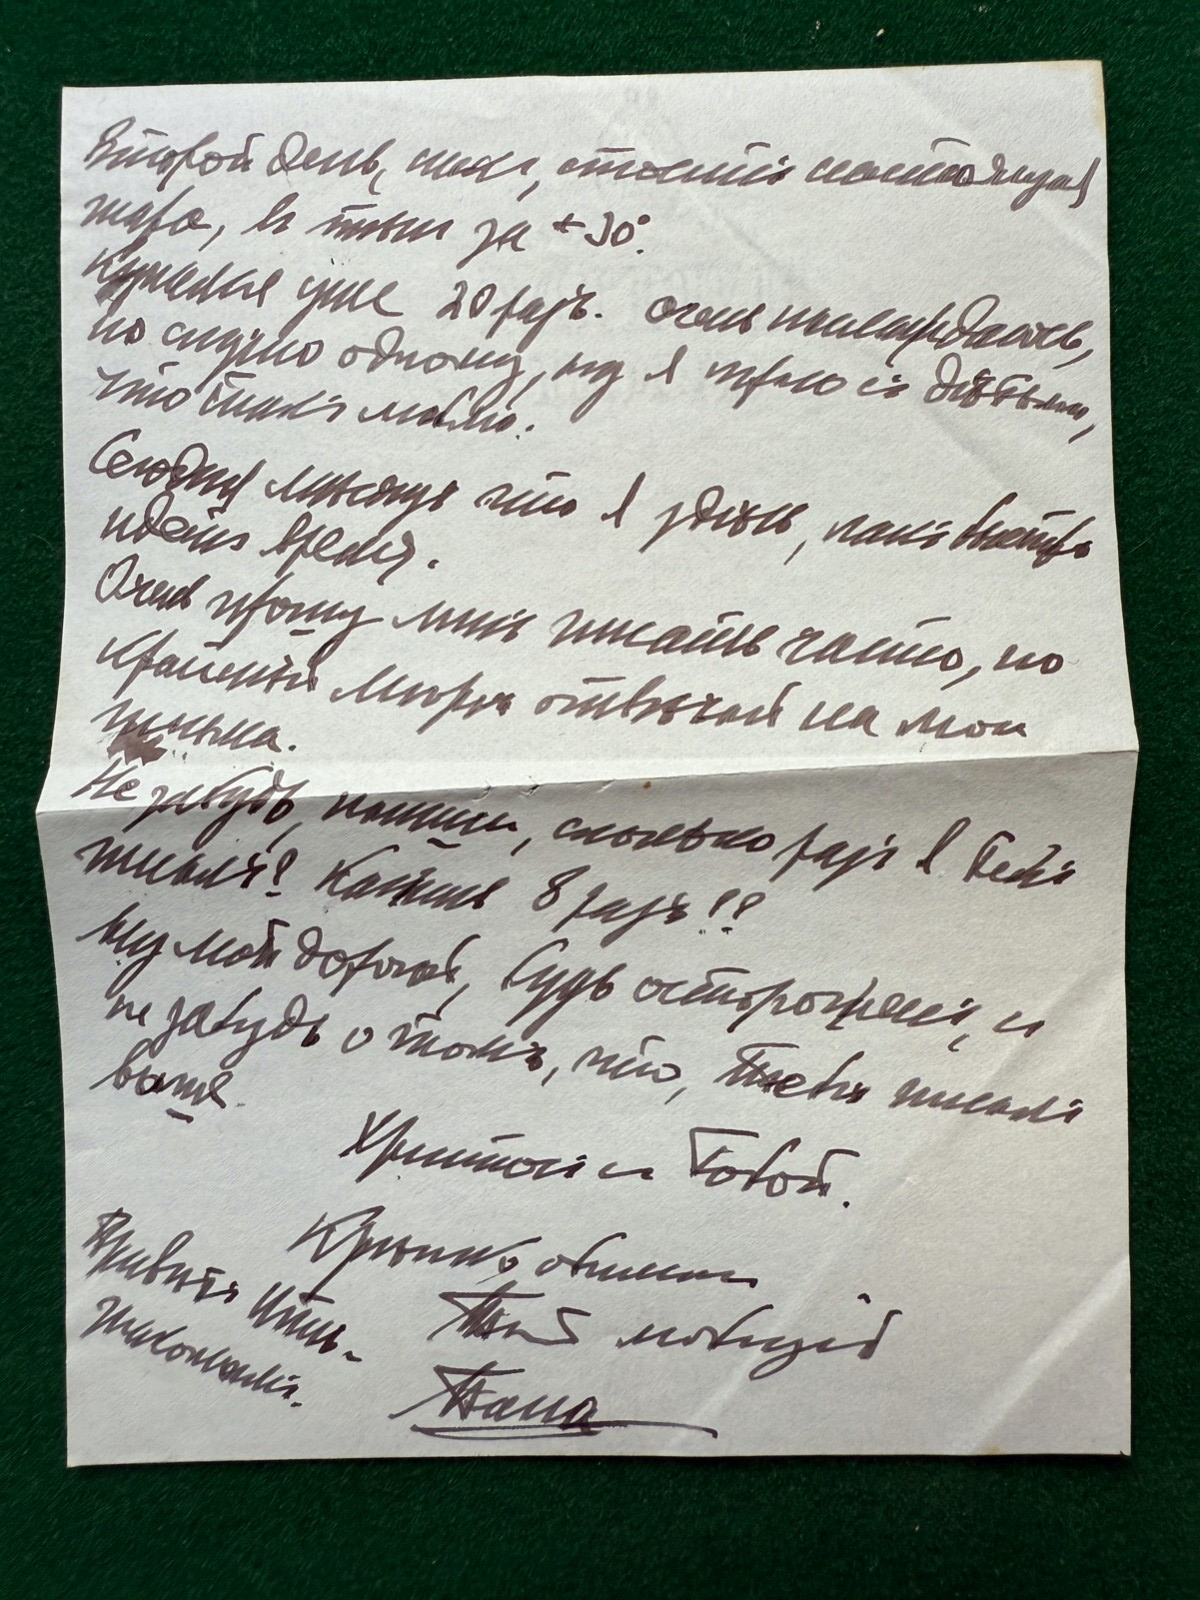 Второй день, какъ, стоитъ настоящая
жара, въ тѣни за +30°.
Купался уже 20 разъ. Очень наслаждаюсь,
но скучно одному, ну я играю съ дѣтьми,
что такъ люблю.
Сегодня мѣсяцъ что я здѣсь, какъ быстро
идетъ время.
Очень прошу мнѣ писать часто, по
крайней мѣрѣ отвѣчай на мои
письма.
Не забудь, напиши, сколько разъ я Тебѣ
писалъ? Кажись 8 разъ!!
Ну мой дорогой, будь остороженъ, и
не забудь о томъ, что, Тебѣ писалъ
выше.
Христосъ съ Тобой.
Крѣпко обнимаю
Твой любящій
Папа
Привѣтъ
знакомымъ.